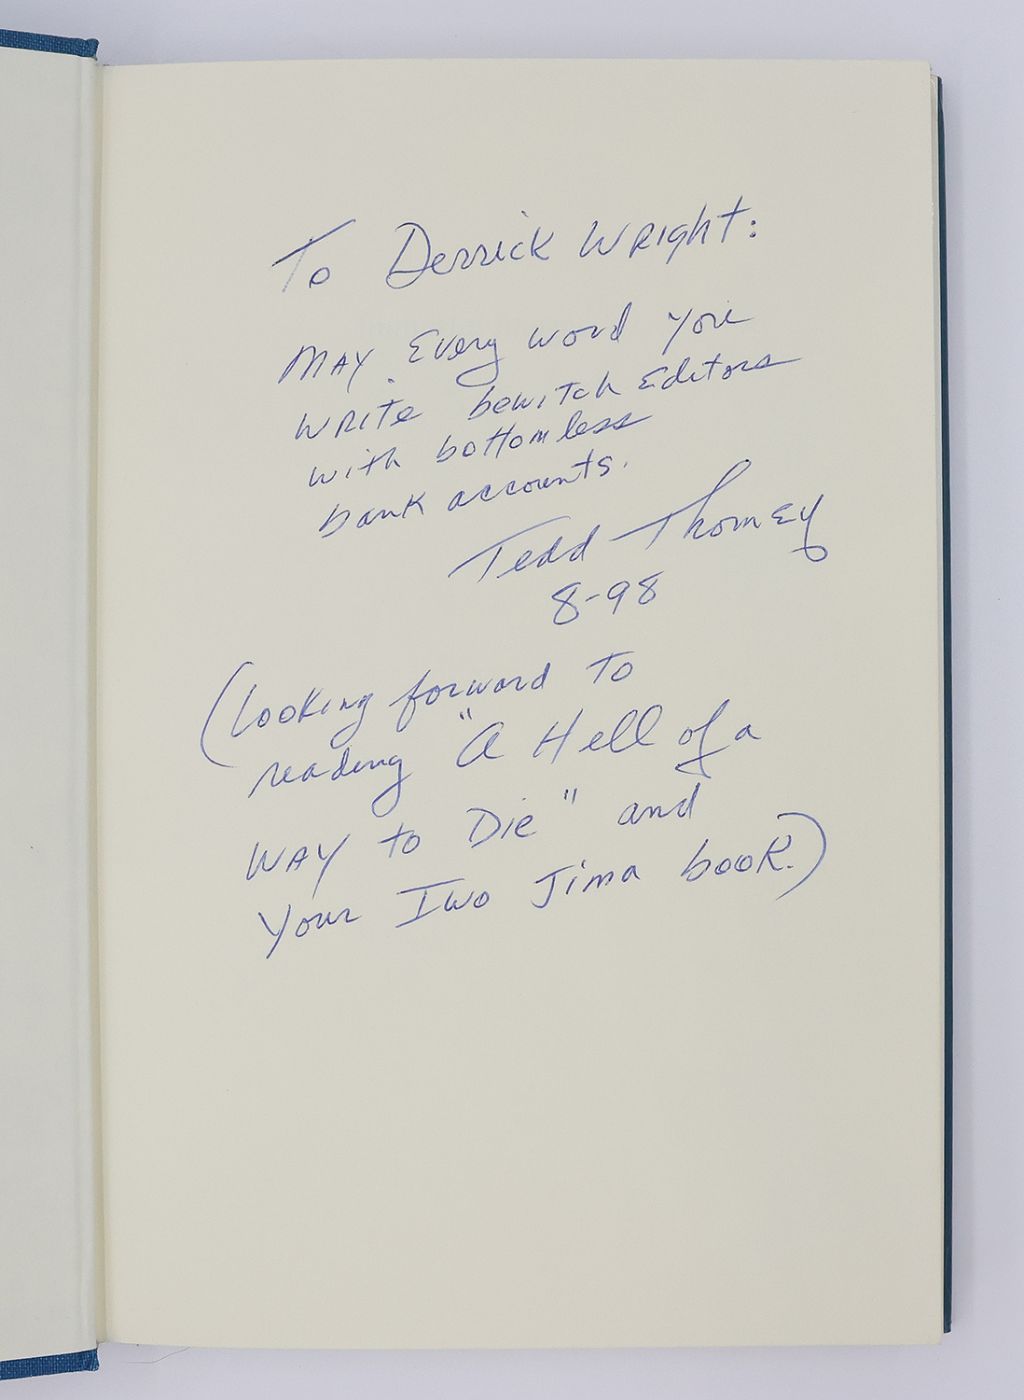 To Derrick Wright:
May Every word you
write bewitch Editors
with bottomless
bank accounts.
Tedd Thomey
8-98
(Looking forward to
reading "A Hell of a
Way to Die" and
Your Iwo Jima book.)